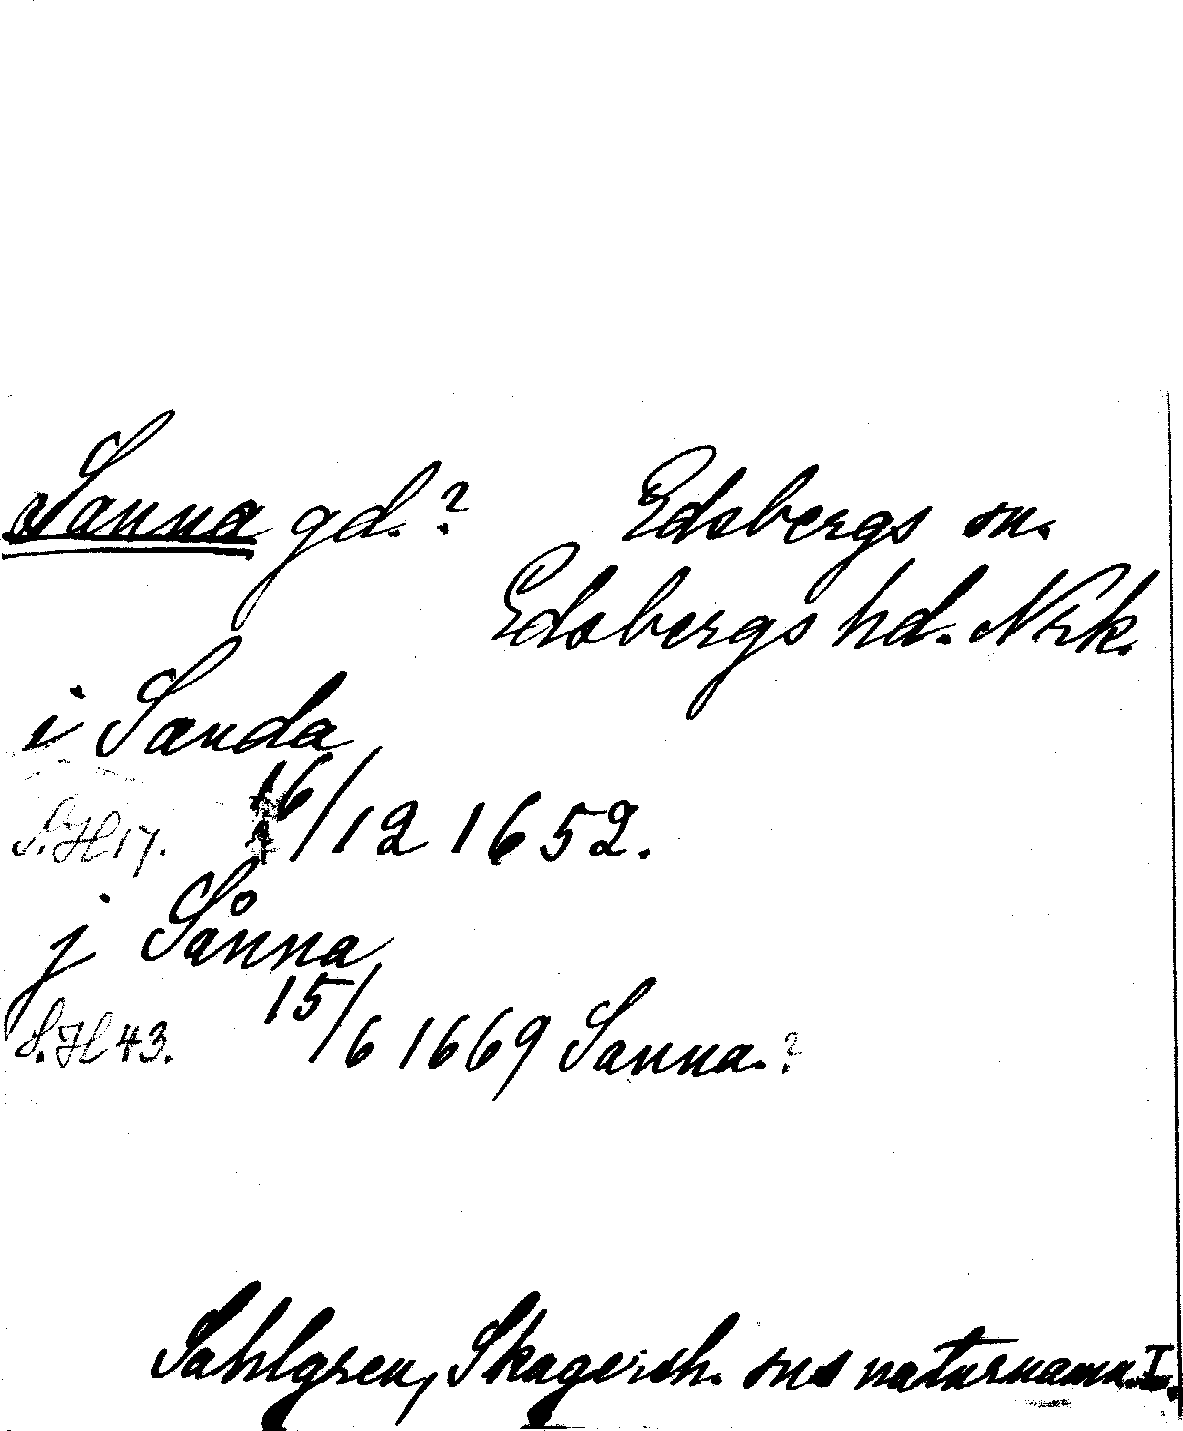 Sanna gd.? Edsbergs sn.
Edsbergs hd. Nrk.
i Sanda
16/12 1652.
S.H 17.
j Sånna
15/6 1669 Sanna.?
S.H 43.
Sahlgren, Skagersh. sns naturnamn. I.